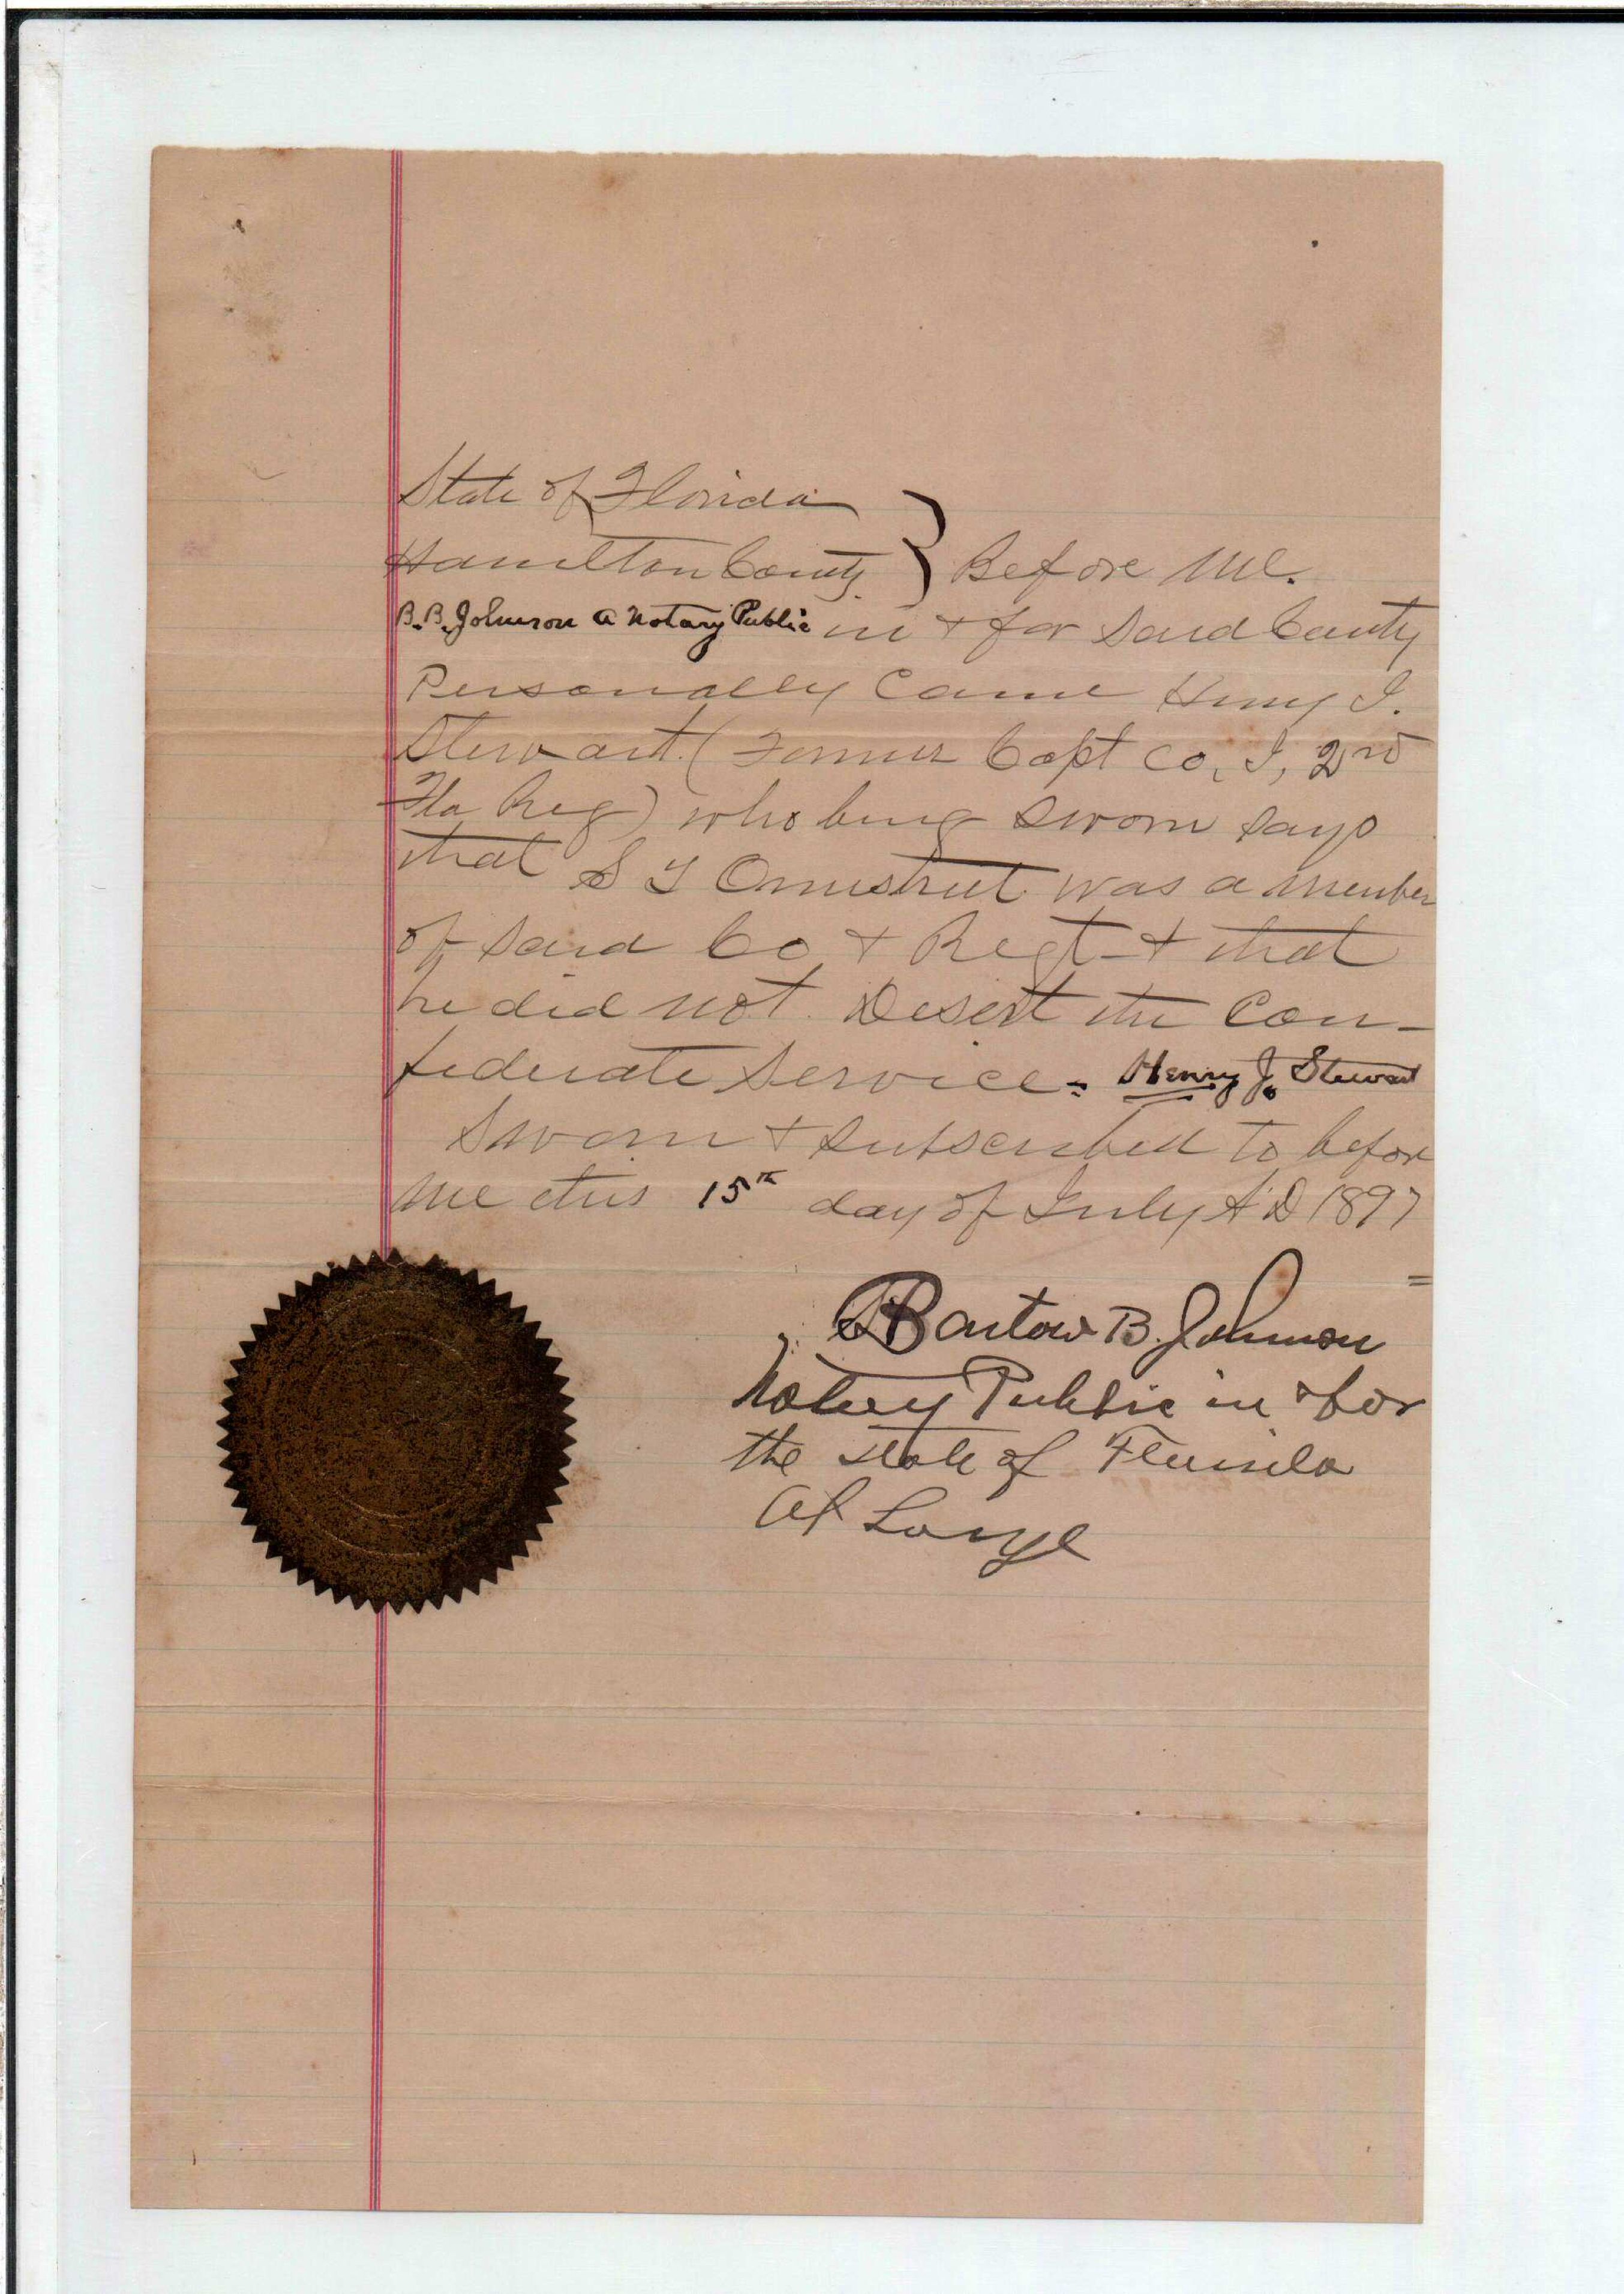 State of Florida
Hamilton County } Before Me.
B. B. Johnson a Notary Public in + for Said County
Personally Came Henry J.
Stewart (Former Capt Co, I, 2nd
Fla Reg) who being sworn says
that S T Overstreet was a member
of Said Co + Regt + that
he did not Desert the Con-
federate Service. Henry J. Stewart
Sworn + Subscribed to before
me this 15th day of July A D 1897
Bartow B. Johnson
Notary Public in + for
the State of Florida
At Large